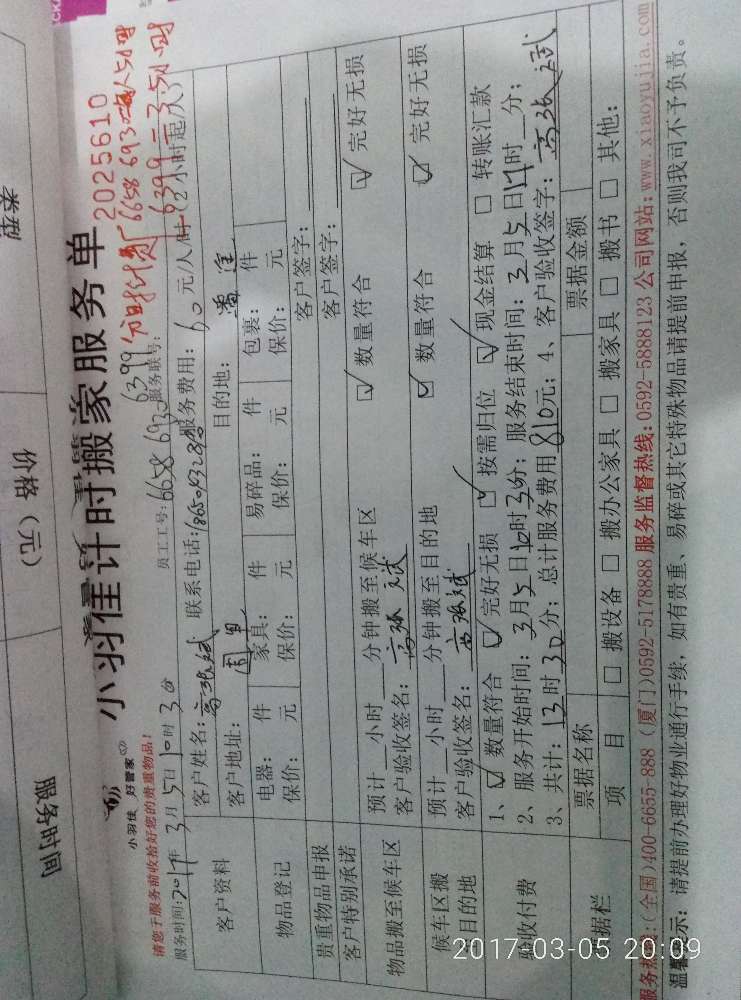 类型
价格（元）
服务时间
小羽佳 好管家
小羽佳计时搬家服务单
2025610
6399
6399=3.5小时
请您于服务前收拾好您的贵重物品!
服务时间:2017年3月5日10时30分
员工工号:6658 6930
服务联号:
服务费用:60元/人/时(2小时起/次)
客户资料
客户姓名:
联系电话:
客户地址:
目的地:
物品登记
电器: 件
家具: 件
易碎品: 件
包裹: 件
保价: 元
保价: 元
保价: 元
保价: 元
贵重物品申报
客户签字:
客户特别承诺
客户签字:
物品搬至候车区
预计__小时__分钟搬至候车区
☑数量符合
☑完好无损
客户验收签名:
候车区搬
至目的地
预计__小时__分钟搬至目的地
☑数量符合
☑完好无损
客户验收签名:
验收付费
1、☑数量符合 ☑完好无损 ☑按需归位 ☑现金结算 □转账汇款
2、服务开始时间:3月5日10时30分; 服务结束时间:3月5日17时__分;
3、共计:13时30分; 总计服务费用810元; 4、客户验收签字:
票据栏
票据名称
票据金额
项 目
□搬设备 □搬办公家具 □搬家具 □搬书 □其他:
服务热线:(全国)400-6655-888 (厦门)0592-5178888 服务监督热线:0592-5888123 公司网站:www.xiaoyujia.com
温馨提示: 请提前办理好物业通行手续, 如有贵重、易碎或其它特殊物品请提前申报, 否则我司不予负责。
2017-03-05 20:09